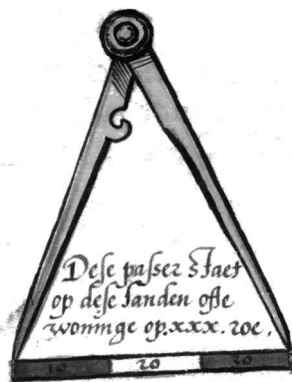 Dese passer staet
op dese landen ofte
woninge op.xxx. roe.
10 20 30